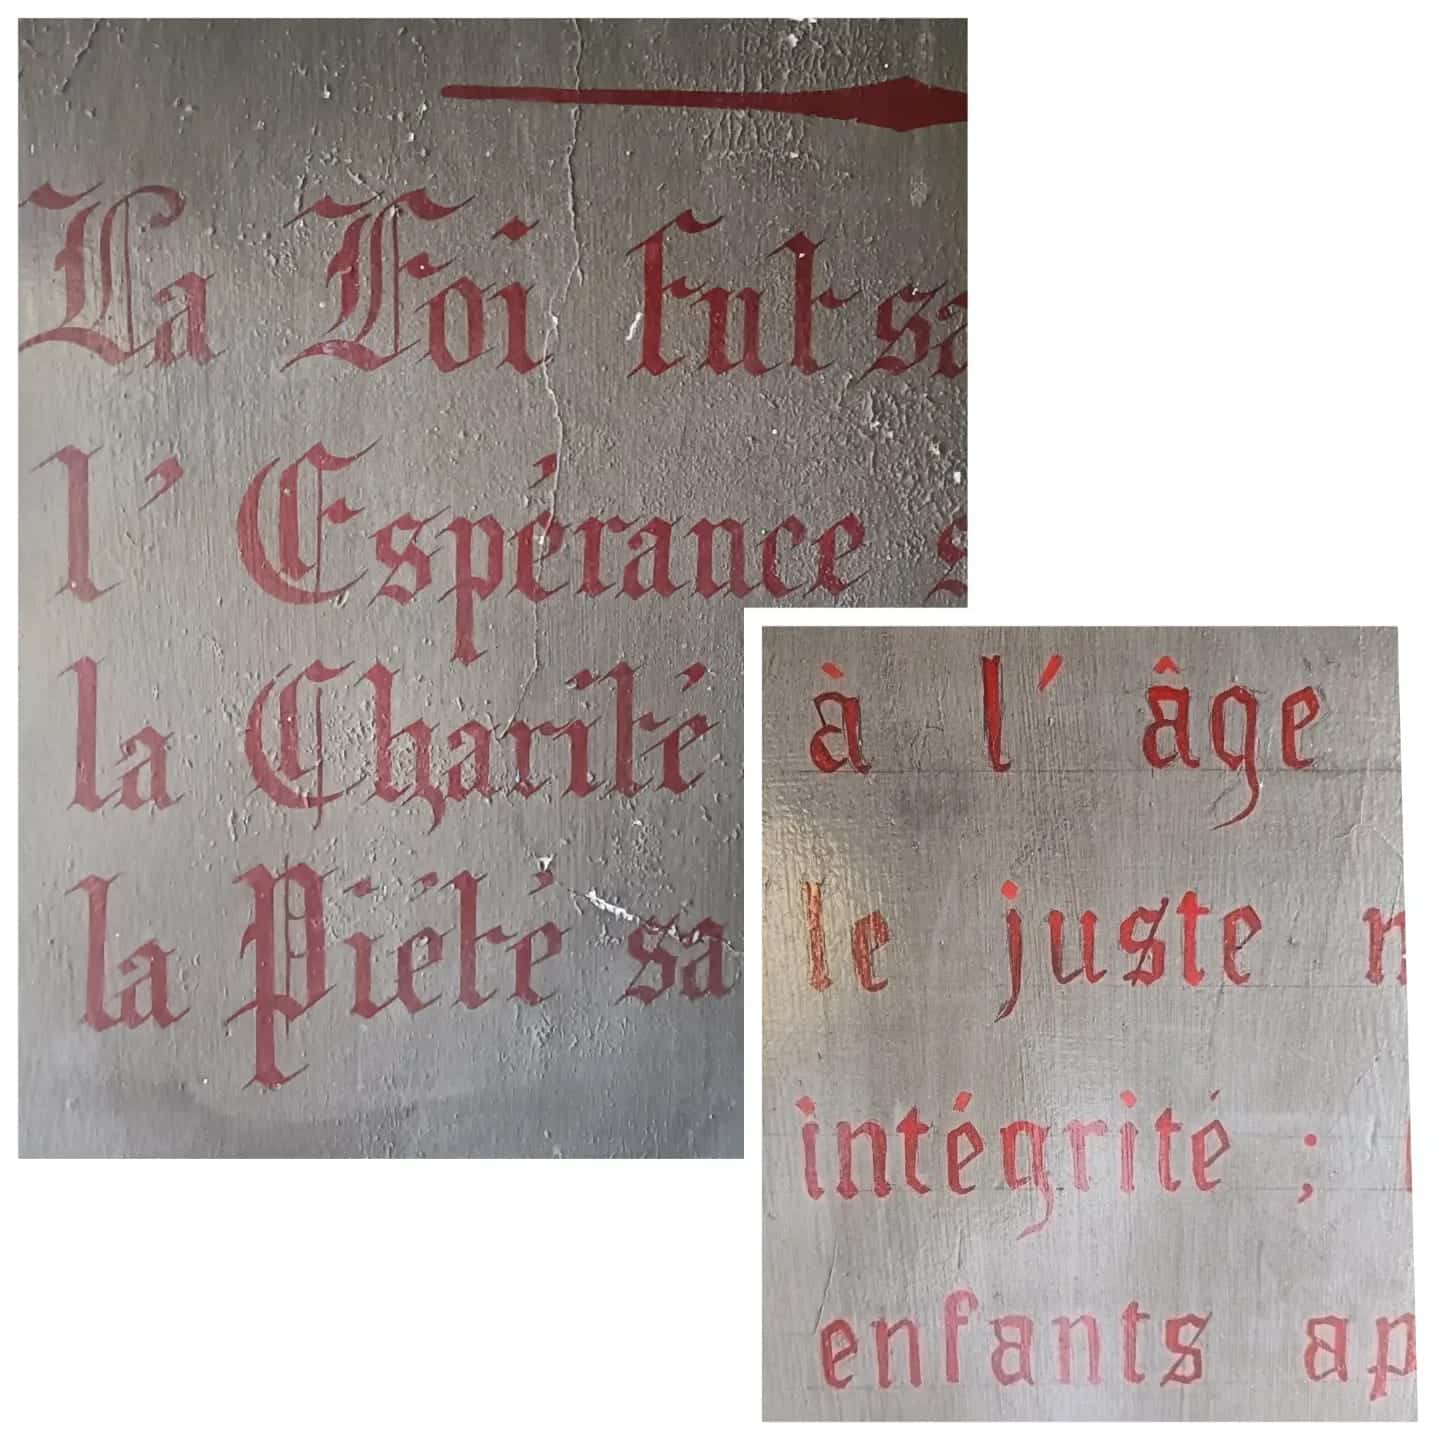 La Foi fut sa
l'Espérance s
la Charité
la Piété sa
à l'âge
le juste
intégrité ;
enfants ap